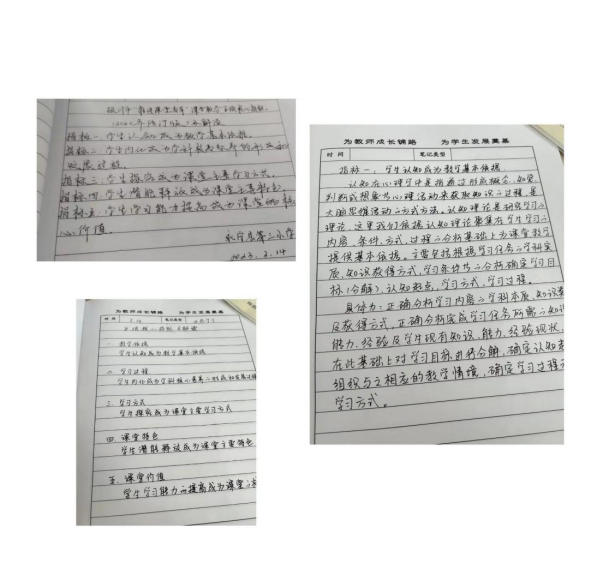 指标一、学生认知成为教学基本依据。
指标二、学生内化成为学科
发展过程。
指标三、学生探究成为课堂主要学习方式。
指标四、学生潜能释放成为课堂主要特色。
指标五、学生学习能力提高成为课堂的核
心价值。
第二小学
2023.2.14
为教师成长铺路 为学生发展奠基
时间 笔记类型
一、教学依据
学生认知成为教学基本依据
二、学习过程
学生内化成为学科核心素养的形成和发展过程
三、学习方式
学生探究成为课堂主要学习方式
四、课堂特色
学生潜能释放成为课堂主要特色
五、课堂价值
学生学习能力的提高成为课堂
为教师成长铺路 为学生发展奠基
时间 笔记类型
指标一、学生认知成为教学基本依据
认知在心理学中是指通过形成概念、知觉、
判断或想象等心理活动来获取知识的过程,是
大脑思维活动的方式方法。认知理论是研究学习的
理论,这里我们依据认知理论聚集在学生学习
内容、条件、方式、过程的分析基础上为课堂教学
提供基本依据。主要包括根据学习任务的学科实
质、知识获得方式、学习条件等的分析确定学习目
标(分解)、认知起点、学习方式、学习过程。
具体为:正确分析学习内容的学科本质、知识
及获得方式,正确分析完成学习任务所需的知识
能力、经验及学生现有知识、能力、经验现状,
在此基础上对学习目标进行分解,确定认知起
组织与之相应的教学情境,确定学习过程
学习方式。